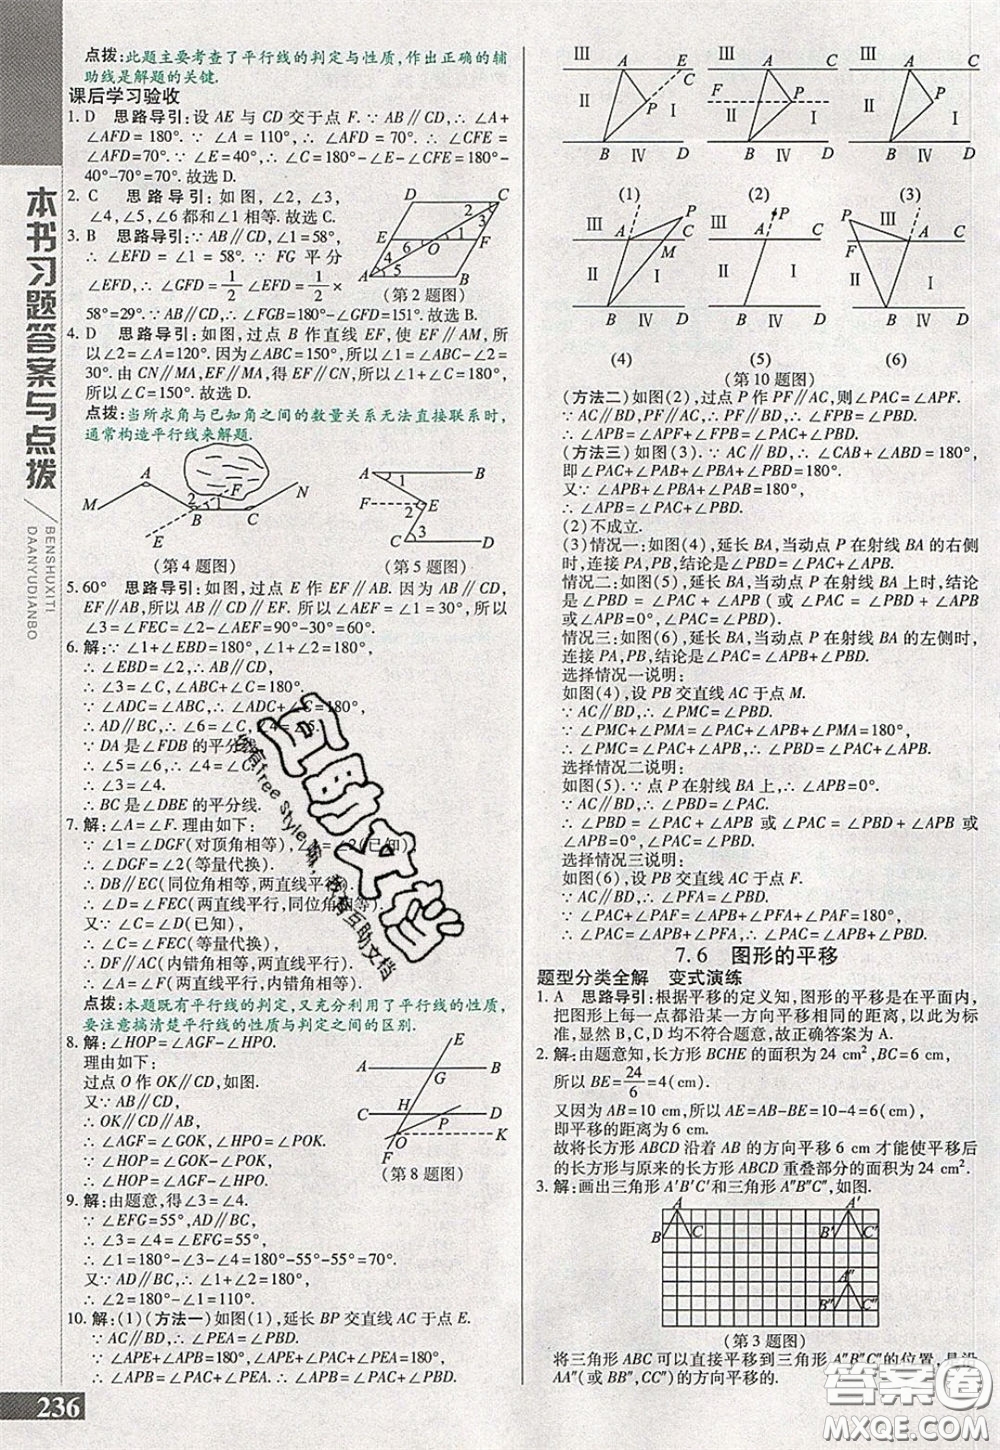 点拨:此题主要考查了平行线的判定与性质,作出正确的辅
助线是解题的关键.
课后学习验收
1. D 思路导引:设 AE 与 CD 交于点 F.∵AB∥CD,∴∠A+
∠AFD=180°.∵∠A=110°,∴∠AFD=70°.∴∠CFE=
∠AFD=70°.∵∠E=40°,∴∠C=180°-∠E-∠CFE=180°-
40°-70°=70°.故选 D.
2. C 思路导引:如图,∠2,∠3,
∠4,∠5,∠6 都和∠1 相等.故选 C.
3. B 思路导引:∵AB∥CD,∠1=58°,
∴∠EFD=∠1=58°.∵FG 平分
∠EFD,∴∠GFD=1/2∠EFD=1/2×
58°=29°.∵AB∥CD,∴∠FGB=180°-∠GFD=151°.故选 B.
D C E F O A B
2 3 1 6 4 5
(第 2 题图)
4. D 思路导引:如图,过点 B 作直线 EF,使 EF∥AM,所
以∠2=∠A=120°.因为∠ABC=150°,所以∠1=∠ABC-
∠2=30°.由 CN∥MA,EF∥MA,得 CN∥EF,所以∠1+∠C=180°,
所以∠C=150°.故选 D.
点拨:当所求角与已知角之间的数量关系无法直接联系时,
通常构造平行线来解题.
A M 2 F N 1 B C E
(第 4 题图)
A B 1 F 2 E 3 C D
(第 5 题图)
5. 60° 思路导引:如图,过点 E 作 EF∥AB.因为 AB∥CD,
EF∥AB,所以 AB∥CD∥EF,所以∠2=∠1=30°,所以
∠3=∠FEC=∠FEC-∠2=90°-30°=60°.
6. 解:∵∠1+∠EBD=180°,∠1+∠2=180°,
∴∠EBD=∠2,∴AB∥CD,
∴∠3=∠C,∠ABC+∠C=180°.
∵∠ADC=∠ABC,∴∠ADC+∠C=180°.
∴AD∥BC,∴∠6=∠C,∠4=∠5.
∵DA 是∠FDB 的平分线,
∴∠5=∠6,∴∠4=∠C.
∴∠3=∠4.
∴BC 是∠DBE 的平分线.
7. 解:∠A=∠F.理由如下:
∵∠1=∠DGF(对顶角相等),∠1=∠2(已知),
∴∠DGF=∠2(等量代换).
∴DB∥EC(同位角相等,两直线平行).
∴∠D=∠FEC(两直线平行,同位角相等).
又∵∠C=∠D(已知),
∴∠FEC=∠C(等量代换).
∴DF∥AC(内错角相等,两直线平行).
∴∠A=∠F(两直线平行,内错角相等).
点拨:本题既有平行线的判定,又充分利用了平行线的性质,
要注意搞清楚平行线的性质与判定之间的区别.
8. 解:∠HOP=∠AGF-∠HPO.
理由如下:
过点 O 作 OK∥CD,如图.
又∵AB∥CD,
∴OK∥CD∥AB,
∴∠AGF=∠GOK,∠HPO=∠POK.
∵∠HOP=∠GOK-∠POK,
∴∠HOP=∠AGF-∠HPO.
E A B G H C D P O K F
(第 8 题图)
9. 解:由题意,得∠3=∠4.
∵∠EFG=55°,AD∥BC,
∴∠3=∠4=∠EFG=55°,
∴∠1=180°-∠3-∠4=180°-55°-55°=70°.
又∵AD∥BC,∴∠1+∠2=180°,
∴∠2=180°-∠1=110°.
10. 解:(1)(方法一)如图(1),延长 BP 交直线 AC 于点 E.
∵AC∥BD,∴∠PEA=∠PBD.
∵∠APE+∠APB=180°,∠APE+∠PAE+∠PEA=180°,
∴∠APB=∠PAE+∠PEA,∴∠APB=∠PAC+∠PBD.
Ⅲ A E C P Ⅱ Ⅰ B Ⅳ D
(1)
Ⅲ A C F P Ⅱ Ⅰ B Ⅳ D
(2)
Ⅲ A C P Ⅱ Ⅰ B Ⅳ D
(3)
Ⅲ A P C M Ⅱ Ⅰ B Ⅳ D
(4)
Ⅲ P A C Ⅱ Ⅰ B Ⅳ D
(5)
P Ⅲ F A C Ⅱ Ⅰ B Ⅳ D
(6)
(第 10 题图)
(方法二)如图(2),过点 P 作 PF∥AC,则∠PAC=∠APF.
∵AC∥BD,PF∥AC,∴PF∥BD.∴∠FPB=∠PBD.
∴∠APB=∠APF+∠FPB=∠PAC+∠PBD.
(方法三)如图(3).∵AC∥BD,∴∠CAB+∠ABD=180°,
即∠PAC+∠PAB+∠PBD+∠PBA=180°.
又∵∠APB+∠PBA+∠PAB=180°,
∴∠APB=∠PAC+∠PBD.
(2)不成立.
(3)情况一:如图(4),延长 BA,当动点 P 在射线 BA 的右侧
时,连接 PA,PB,结论是∠PBD=∠PAC+∠APB.
情况二:如图(5),延长 BA,当动点 P 在射线 BA 上时,结论
是∠PBD=∠PAC+∠APB(或∠PAC=∠PBD+∠APB 或
∠APB=0°,∠PAC=∠PBD).
情况三:如图(6),延长 BA,当动点 P 在射线 BA 的左侧时,
连接 PA,PB,结论是∠PAC=∠APB+∠PBD.
选择情况一说明:
如图(4),设 PB 交直线 AC 于点 M.
∵AC∥BD,∴∠PMC=∠PBD.
∵∠PMC+∠PMA=∠PAC+∠APB+∠PMA=180°,
∴∠PMC=∠PAC+∠APB,∴∠PBD=∠PAC+∠APB.
选择情况二说明:
如图(5).∵点 P 在射线 BA 上,∴∠APB=0°.
∵AC∥BD,∴∠PBD=∠PAC.
∴∠PBD=∠PAC+∠APB 或∠PAC=∠PBD+∠APB
或∠APB=0°,∠PAC=∠PBD.
选择情况三说明:
如图(6),设 PB 交直线 AC 于点 F.
∵AC∥BD,∴∠PFA=∠PBD.
∵∠PAC+∠PAF=∠APB+∠PFA+∠PAF=180°,
∴∠PAC=∠APB+∠PFA,∴∠PAC=∠APB+∠PBD.
7.6 图形的平移
题型分类全解 变式演练
1. A 思路导引:根据平移的定义知,图形的平移是在平面内,
把图形上每一点都沿某一方向平移相同的距离,以此为
标准,显然 B,C,D 均不符合题意,故正确答案为 A.
2. 解:由题意知,长方形 BCHE 的面积为 24 cm²,BC=6 cm,
所以 BE=24/6=4(cm).
又因为 AB=10 cm,所以 AE=AB-BE=10-4=6(cm),
即平移的距离为 6 cm.
故将长方形 ABCD 沿着 AB 的方向平移 6 cm 才能使平移后
的长方形与原来的长方形 ABCD 重叠部分的面积为 24 cm².
3. 解:画出三角形 A′B′C′和三角形 A″B″C″,如图.
A A′ B C B′ C′ A″ B″ C″
(第 3 题图)
将三角形 ABC 可以直接平移到三角形 A″B″C″的位置,是沿
AA″(或 BB″,CC″)的方向平移的.
本书习题答案与点拨
BENSHUXITI
DAANYUDIANBO
236
答案圈
MXQE.COM